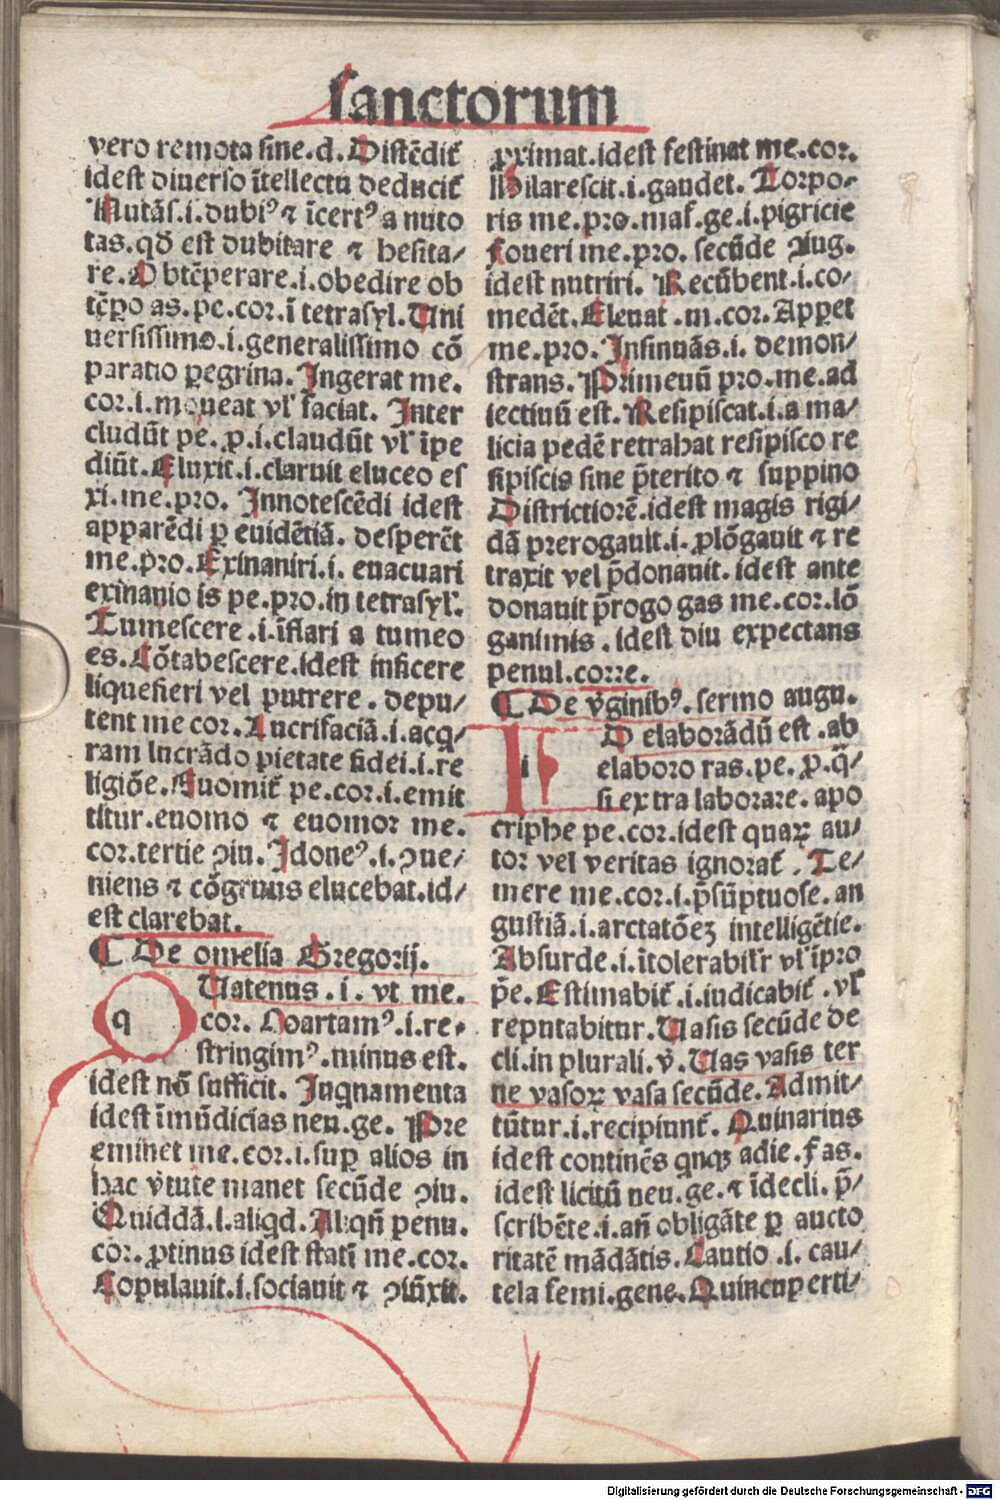 sanctorum
vero remota sine.d. Distēdit̄
idest diuerso ītellectu deducit̄
Nutās.i.dubiꝰ ⁊ īcertꝰ a nuto
tas.qđ est dubitare ⁊ hesita/
re. Obtēperare.i.obedire ob
tēꝑo as.pe.cor.ī tetrasyl. Uni
uersissimo.i.generalissimo cō
paratio ꝑegrina. Ingerat me.
cor.i.moueat vl̛ faciat. Inter
cludūt pe. ꝓ.i.claudūt vl̛ īpe
diūt. Eluxit.i.claruit eluceo es
xi.me.pro. Innotescēdi idest
apparēdi ꝑ euidētiā. desperēt
me.pro. Exinaniri.i. euacuari
exinanio is pe.pro.in tetrasyl̛.
Tumescere.i.īflari a tumeo
es. Cōtabescere.idest inficere
liquefieri vel putrere. depu/
tent me cor. Lucrifaciā.i.acq/
ram lucrādo pietate fidei.i.re
ligiōe. Euomit̄ pe.cor.i.emit
titur.euomo ⁊ euomor me.
cor.tertie ꝯiu. Idoneꝰ.i.ꝯue/
niens ⁊ cōgruus elucebat.id/
est clarebat.
¶ De omelia Gregorij.
q Uatenus.i. vt me.
cor. Coartamꝰ.i.re-
stringimꝰ.minus est.
idest nō sufficit. Inqnamenta
idest īmūdicias neu.ge. Pre
eminet me.cor.i.suꝑ alios in
hac v̄tute manet secūde ꝯiu.
Quiddā.i.aliqd. Aliqn̄ penu.
cor. ꝓtinus idest statī me.cor.
Copulauit.i.sociauit ⁊ ꝯiūxit.
ꝓximat.idest festinat me.cor.
Hilarescit.i.gaudet. Torpo-
ris me.pro.mas̛.ge.i.pigricie
foueri me.pro. secūde ꝯiug.
idest nutriri. Recūbent.i.co/
medēt. Eleuat.m.cor. Appet
me.pro. Insinuās.i. demon/
strans. Primeuū pro.me.ad
iectiuū est. Resipiscat.i.a ma/
licia pedē retrahat resipisco re
sipiscis sine p̄terito ⁊ suppino
Districtiorē.idest magis rigi/
dā prerogauit.i. ꝓlōgauit ⁊ re
traxit vel p̄donauit.idest ante
donauit p̄rogo gas me.cor.lō
ganimis.idest diu expectans
penul.corre.
¶ De v̄ginibꝰ.sermo augu.
i D elaborādū est.ab
elaboro ras.pe.ꝓ.q̄/
si extra laborare. apo
criphe pe.cor.idest quaꝝ au/
tor vel veritas ignorat̄. Te/
mere me.cor.i.p̄sūptuose.an
gustiā.i.arctatōeꝫ intelligētie.
Absurde.i.ītolerabil̛r vl̛ īpro
p̄e. Estimabit̄.i.iudicabit̄.vl̛
reputabitur. Uasis secūde de
cli.in plurali.v̄. Uas vasis ter
ne vasoꝝ vasa secūde. Admit/
tūtur.i.recipiunt̄. Quinarius
idest continēs qnqꝫ adie. Fas.
idest licitū neu.ge.⁊ īdecli. p̄/
scribēte.i.an̄ obligāte ꝑ aucto
ritatē mādātis. Cautio.i. cau/
tela femi.gene. Quincuꝑerti/
Digitalisierung gefördert durch die Deutsche Forschungsgemeinschaft - DFG